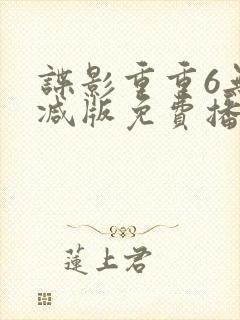 諜影重重6無
減版免費播
蓮上君